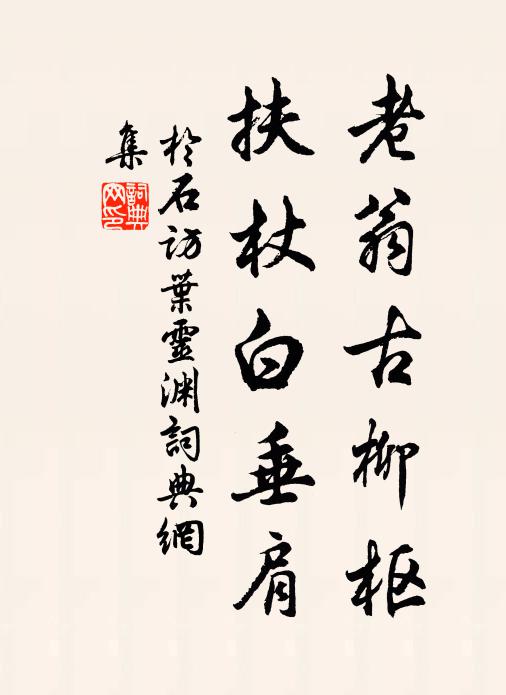 老翁古柳枢
扶杖白垂肩
於石訪葉靈渊詞典網
集
詞典
网印